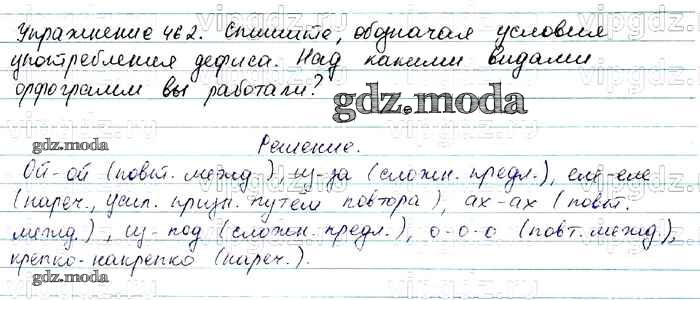 Упражнение 462. Спишите, обозначая условия
употребления дефиса. Над какими видами
орфограмм вы работали?
gdz.moda
gdz.moda
Решение.
Ой-ой (повт. межд.) из-за (сложн. предл.), еле-еле
(нареч., усил. призн. путём повтора), ах-ах (повт.
межд.), из-под (сложн. предл.), о-о-о (повт. межд.),
крепко-накрепко (нареч.).
gdz.moda